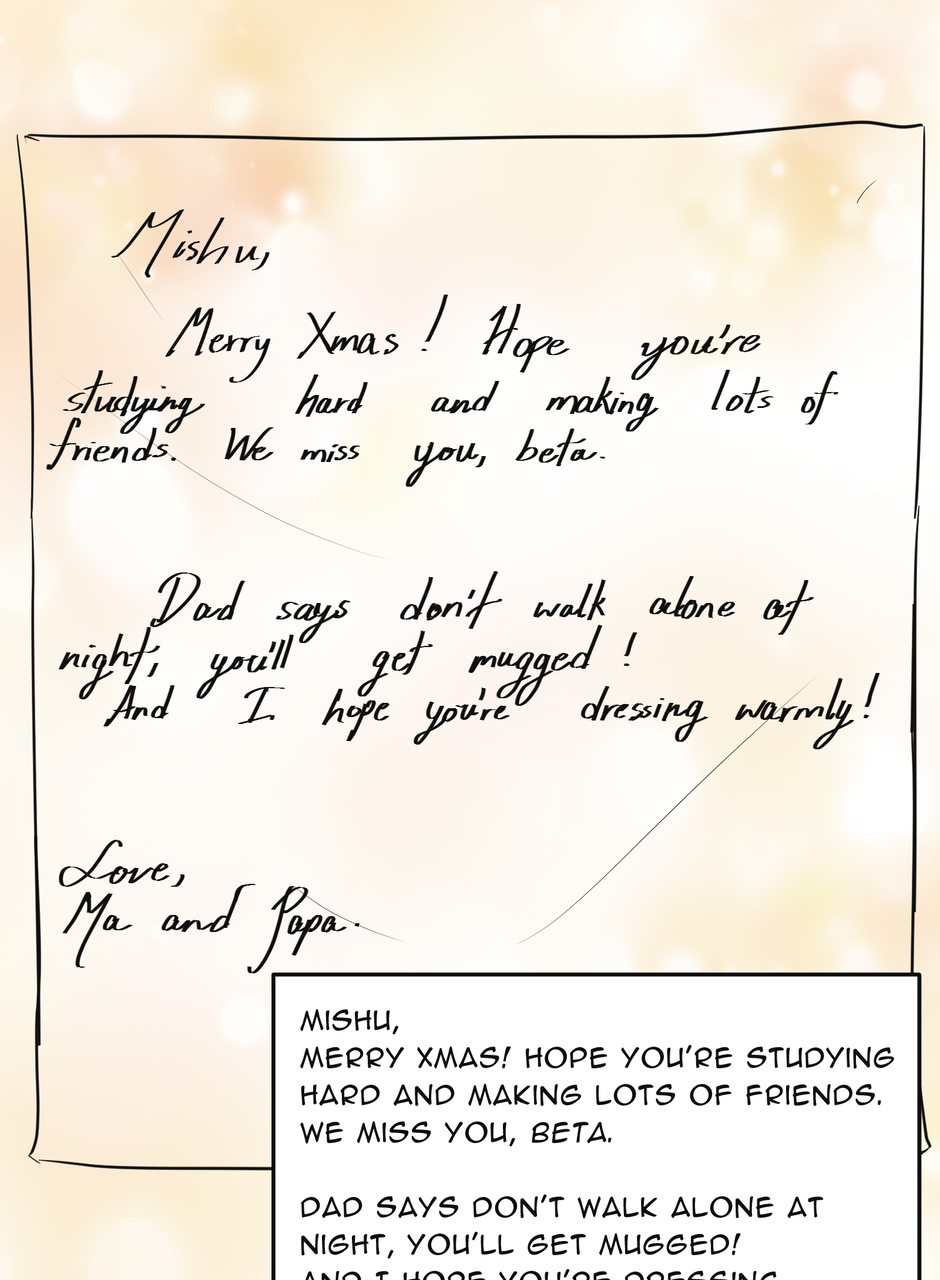 Mishu,
Merry Xmas! Hope you're
studying hard and making lots of
friends. We miss you, beta.
Dad says don't walk alone at
night, you'll get mugged!
And I hope you're dressing warmly!
Love,
Ma and Papa.
MISHU,
MERRY XMAS! HOPE YOU'RE STUDYING
HARD AND MAKING LOTS OF FRIENDS.
WE MISS YOU, BETA.
DAD SAYS DON'T WALK ALONE AT
NIGHT, YOU'LL GET MUGGED!
AND I HOPE YOU'RE DRESSING